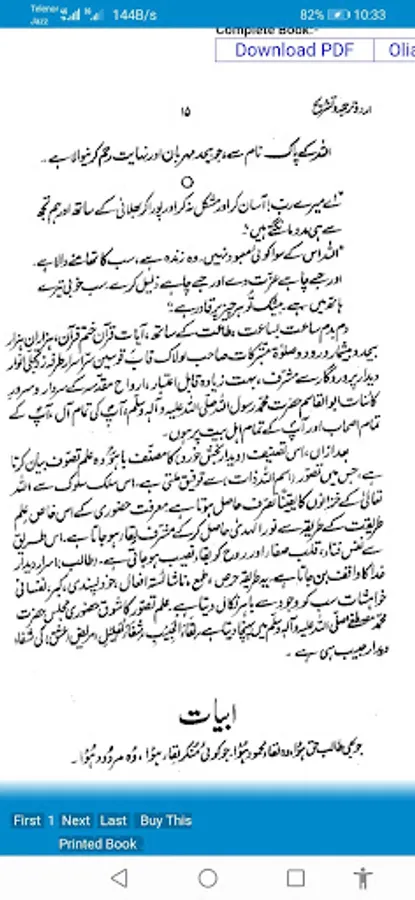 Telenor
Jazz
144B/s
82%
10:33
Complete Book:-
Download PDF
Olia
۱۵
اردو ترجمہ و تشریح
اللہ کے پاک نام سے، جو بیحد مہربان اور نہایت رحم کرنیوالا ہے۔
"اے میرے رب! آسان کر اور مشکل نہ کر اور پورا کر بھلائی کے ساتھ اور ہم تجھ
سے ہی مدد مانگتے ہیں"۔
"اللہ اس کے سوا کوئی معبود نہیں۔ وہ زندہ ہے، سب کا تھامنے والا ہے۔
اور جسے چاہے عزت دے اور جسے چاہے ذلیل کرے۔ سب خوبی تیرے
ہاتھ میں ہے۔ بیشک تُو ہر چیز پر قادر ہے"۔
دم بدم ساعت بساعت، طاعت کے ساتھ، آیات قرآن ختم قرآن، ہزاراں ہزار
بیحد و بیشمار درود و صلوٰۃ متبرکات صاحب لولاک قاب قوسین سراسر
دیدار پروردگار سے مشرف، بہت زیادہ قابل اعتبار، ارواح مقدسہ کے سردار و سرور
کائنات ابوالقاسم حضرت محمد رسول اللہ صلی اللہ علیہ و آلہ وسلم، آپ کی تمام آل، آپ کے
تمام اصحاب اور آپ کے تمام اہل بیت پر ہوں۔
بعد ازاں، اس تصنیف (دیدار بخش خورد) کا مصنف باہُوؒ وہ علم تصوف بیان کرتا
ہے، جس میں تصور (اسم اللہ ذات)، سے توفیق ملتی ہے۔ اس سلک سلوک سے اللہ
تعالیٰ کے خزانوں کا یقیناً تصرف حاصل ہوتا ہے۔ معرفت حضوری کے اس خاص علم
طریقت کے طریقے سے نور الہدیٰ حاصل کر کے مشرف بلقاء ہو جاتا ہے۔ اس طریق
سے نفس فنا، قلب صفا اور روح کو بقا نصیب ہو جاتی ہے۔ (طالب) اسرار دیدار
خدا کا واقف بن جاتا ہے۔ یہ طریقہ حرص، طمع، ناشائستہ افعال، خود پسندی، کبر، نفسانی
خواہشات سب کو وجود سے باہر نکال دیتا ہے۔ علم تصور کا شوق حضوری مجلس حضرت
محمد مصطفےٰ صلی اللہ علیہ و آلہ وسلم میں پہنچا دیتا ہے۔ لِقَاءُ الْحَبِيْبِ شِفَاءُ الْعَلِيْلِ۔ مریض (عشق) کی شفاء
دیدار حبیب ہی ہے۔
ابیات
جو بھی طالب حق ہُوا، وہ بلقاء محمود ہُوا۔ جو کوئی مُنکر بلقاء ہوا، وُہ مردُود ہُوا۔
First 1 Next Last Buy This
Printed Book